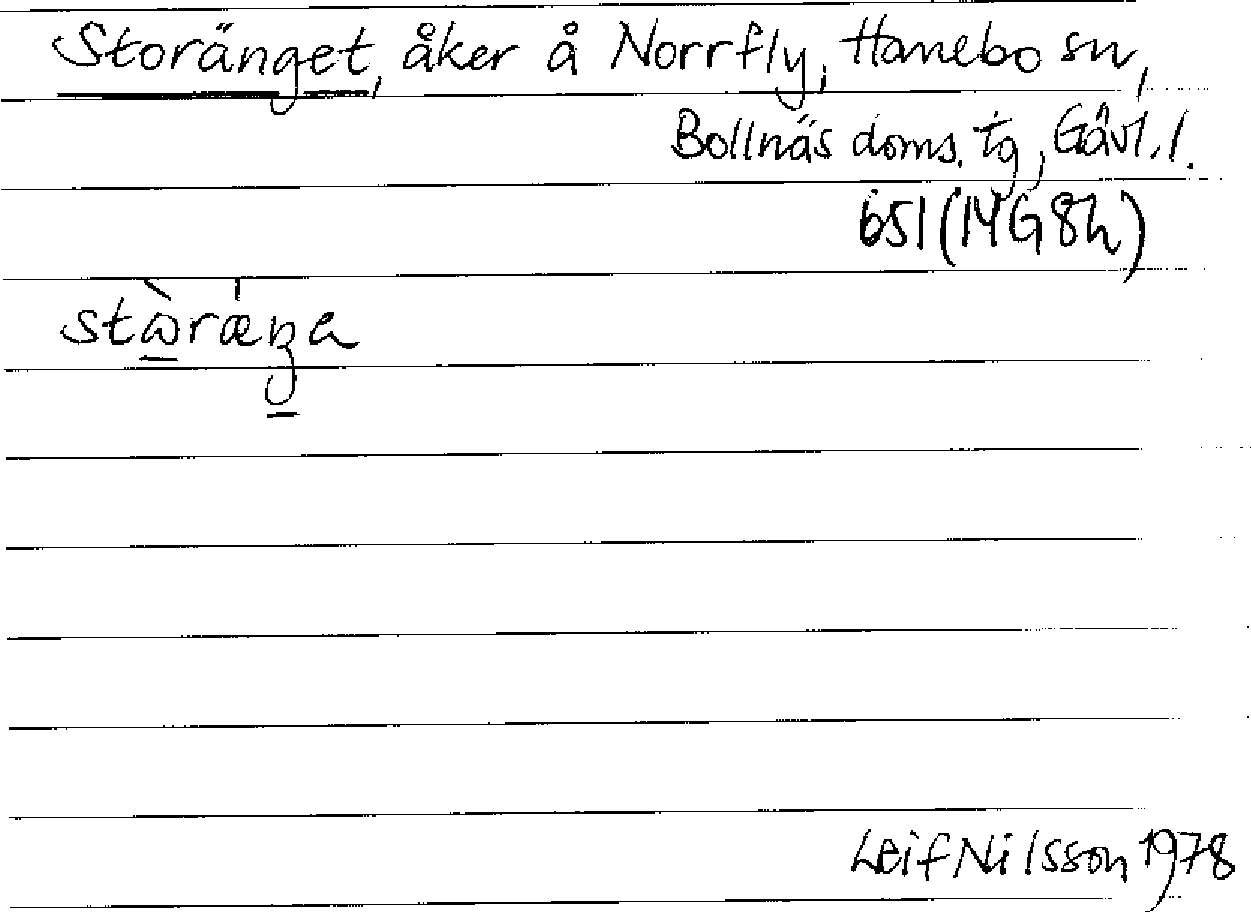 Storänget, åker å Norrfly, Hanebo sn,
Bollnäs doms. tg, Gävl. l.
651 (14G8h)
stɷ̀ráŋa
Leif Nilsson 1978